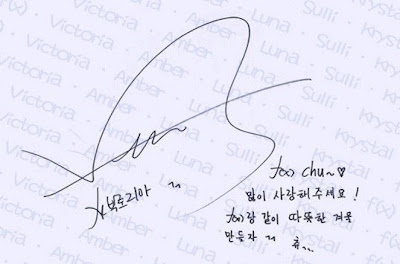 f(x) · Victoria · Amber · Luna · Sulli · Krystal
빅토리아 ~
f(x) chu~♡
많이 사랑해주세요!
f(x)랑 같이 따뜻한 겨울
만들자 ~